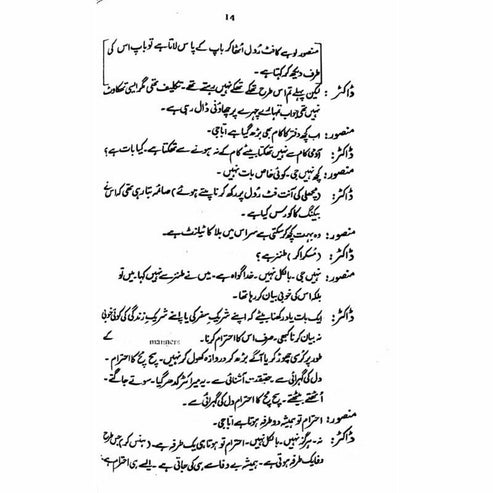 14
منصور لوہے کا فٹ رُول اُٹھا کر باپ کے پاس لاتا ہے تو باپ اس کی
طرف دیکھ کر کہتا ہے۔
ڈاکٹر : لیکن پہلے تم اس طرح تھکے تھکے نہیں رہتے تھے۔ تکلیف تھی مگر ایسی تھکاوٹ
نہیں تھی جو اب تمہارے چہرے پر چھاؤنی ڈال رہی ہے۔
منصور : اب کچھ دفتر کا کام بھی بڑھ گیا ہے ابّا جی۔
ڈاکٹر : آدمی کام سے نہیں تھکتا بیٹے کام کے نہ ہونے سے تھکتا ہے۔ کیا بات ہے؟
منصور : کچھ نہیں جی۔ کوئی خاص بات نہیں۔
ڈاکٹر : (مچھلی کی آنت فٹ رُول پر رکھ کر ناپتے ہوئے) صائمہ بتا رہی تھی کہ اس نے
بیکنگ کا کورس کیا ہے۔
منصور : وہ بہت کچھ کر سکتی ہے سر اس میں بلا کا ٹیلنٹ ہے۔
ڈاکٹر : (مسکرا کر) طنز ہے؟
منصور : نہیں جی۔ بالکل نہیں۔ خدا گواہ ہے۔ میں نے طنز سے نہیں کہا۔ میں تو
بلکہ اس کی خوبی بیان کر رہا تھا۔
ڈاکٹر : ایک بات یاد رکھنا بیٹے کہ اپنے شریکِ سفر کی یا اپنے شریکِ زندگی کی کوئی خوبی
نہ بیان کرنا کبھی۔ صرف اس کا احترام کرنا۔ manners کے
طور پر کرسی چھوڑ کر یا آگے بڑھ کر دروازہ کھول کر نہیں۔ سچ مچ کا احترام۔
دل کی گہرائی سے۔ حقیقت آشنائی سے۔ یہ میرا کٹر کدھر گیا۔ سوتے جاگتے۔
اُٹھتے بیٹھتے۔ سچ مچ کا احترام دل کی گہرائی سے۔
منصور : احترام تو ہمیشہ دو طرفہ ہوتا ہے ابّا جی۔
ڈاکٹر : نہ۔ ہرگز نہیں۔ بالکل نہیں۔ احترام تو ہوتا ہی یک طرفہ ہے۔ (ہنس کر) جس طرح
وفا یک طرفہ ہوتی ہے۔ ہمیشہ بے وفا سے ہی کی جاتی ہے۔ ایسے ہی احترام ہے